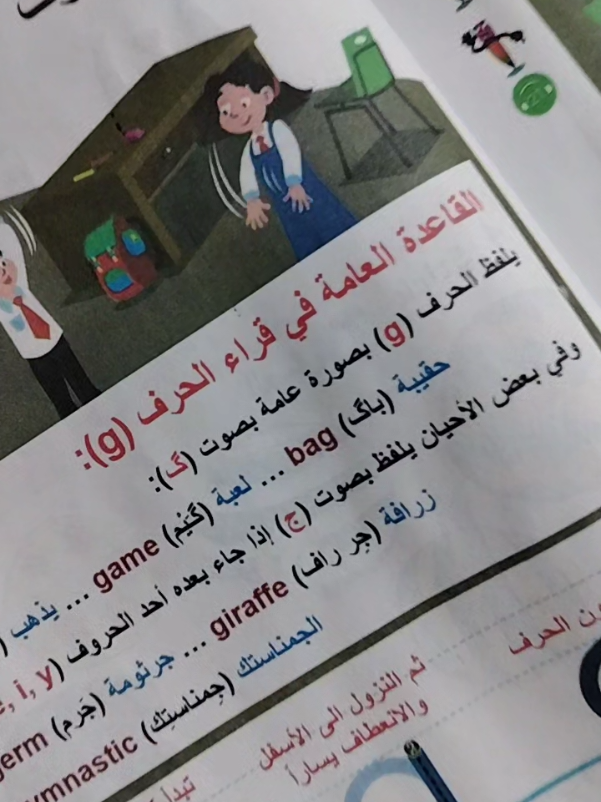 القاعدة العامة في قراء الحرف (g):
يلفظ الحرف (g) بصورة عامة بصوت (گ):
حقيبة (باگ) bag ... لعبة (گَيْم) game ... يذهب (
وفي بعض الأحيان يلفظ بصوت (ج) إذا جاء بعده أحد الحروف (, i, y
زرافة (جِر راف) giraffe ... جرثومة (جَرم) germ
الجمناستك (جِمناستِك) ymnastic
ون الحرف
ثم النزول الى الأسفل
والانعطاف يساراً
تبدأ